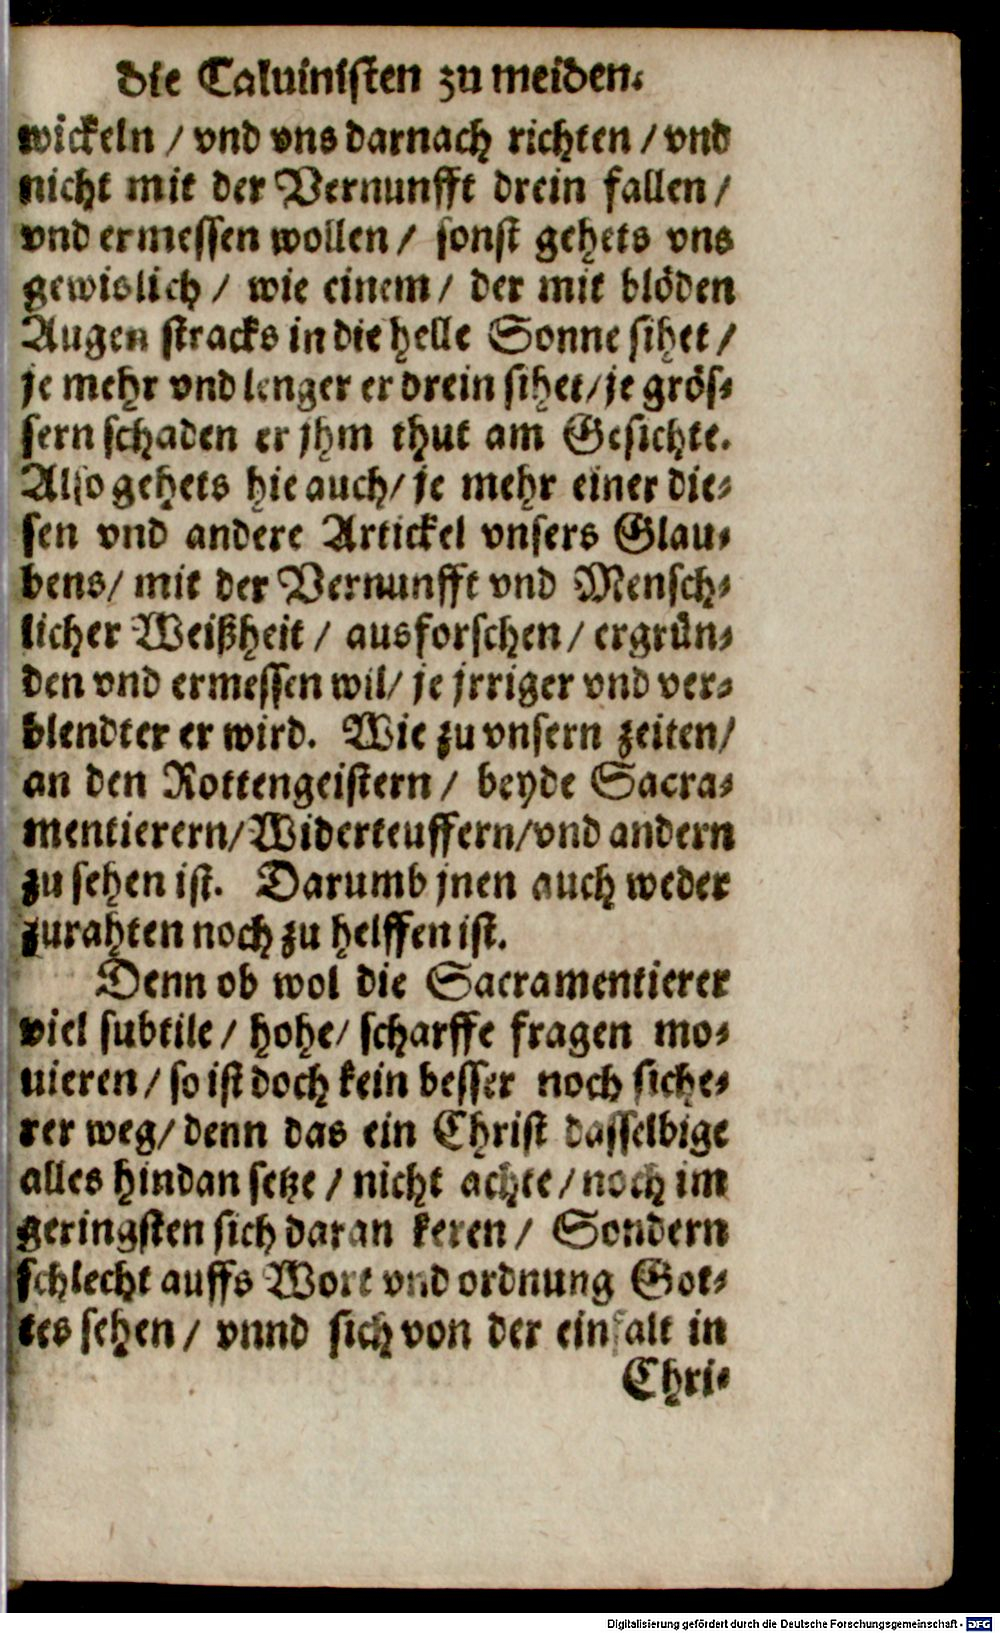 die Caluinisten zu meiden.
wickeln / vnd vns darnach richten / vnd
nicht mit der Vernunfft drein fallen /
vnd ermessen wollen / sonst gehets vns
gewislich / wie einem / der mit blöden
Augen stracks in die helle Sonne sihet /
je mehr vnd lenger er drein sihet / je grös⸗
sern schaden er jhm thut am Gesichte.
Also gehets hie auch / je mehr einer die⸗
sen vnd andere Artickel vnsers Glau⸗
bens / mit der Vernunfft vnd Mensch⸗
licher Weißheit / ausforschen / ergrün⸗
den vnd ermessen wil / je jrriger vnd ver⸗
blendter er wird. Wie zu vnsern zeiten /
an den Rottengeistern / beyde Sacra⸗
mentierern / Widerteuffern / vnd andern
zu sehen ist. Darumb jnen auch weder
zurahten noch zu helffen ist.
Denn ob wol die Sacramentierer
viel subtile / hohe / scharffe fragen mo⸗
uieren / so ist doch kein besser noch siche⸗
rer weg / denn das ein Christ dasselbige
alles hindan setze / nicht achte / noch im
geringsten sich daran keren / Sondern
schlecht auffs Wort vnd ordnung Got⸗
tes sehen / vnnd sich von der einfalt in
Chri⸗
Digitalisierung gefördert durch die Deutsche Forschungsgemeinschaft - DFG